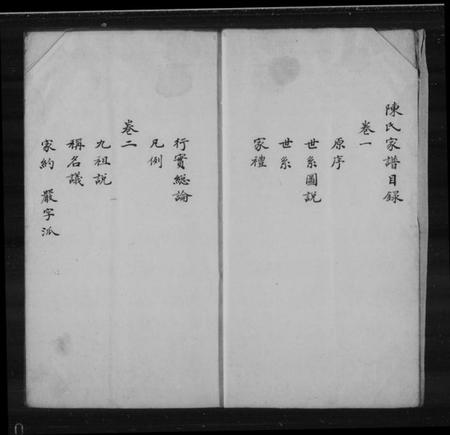 陳氏家譜目録
卷一
原序
世系圖説
世系
冢禮
行實総論
凡例
卷二
九祖説
稱名議
家約 嚴字派